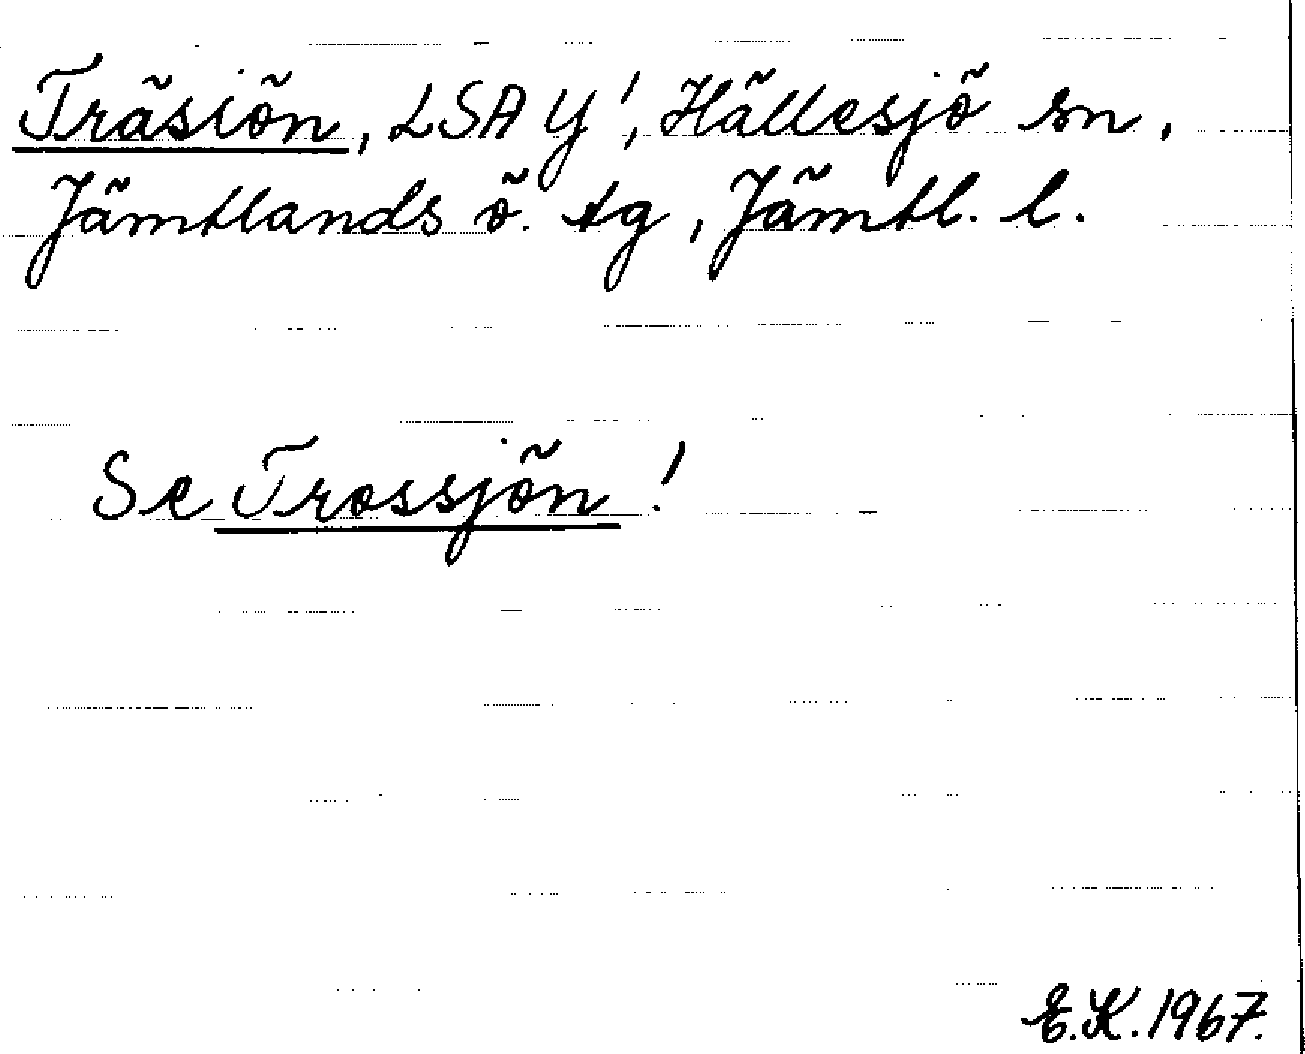 Träsiön, LSA Y', Hällesjö sn,
Jämtlands ö. tg, Jämtl. l.
Se Trossjön!
E.K. 1967.